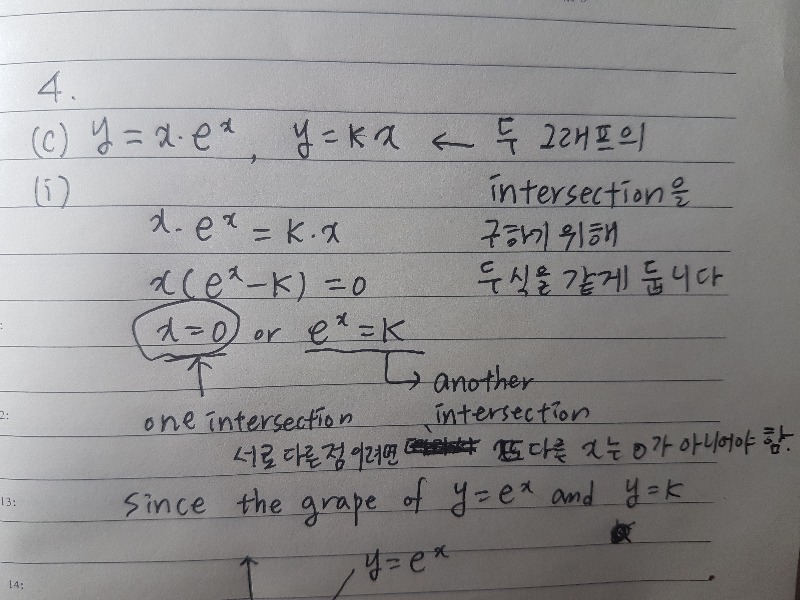 4.
(c) y = x · eˣ, y = kx ← 두 그래프의
(i) intersection을
x · eˣ = k · x 구하기 위해
x(eˣ - k) = 0 두 식을 같게 둡니다
x = 0 or eˣ = k
another
one intersection intersection
서로 다른 점이려면 또다른 x는 0가 아니어야 함.
13: Since the grape of y = eˣ and y = k
y = eˣ
14: